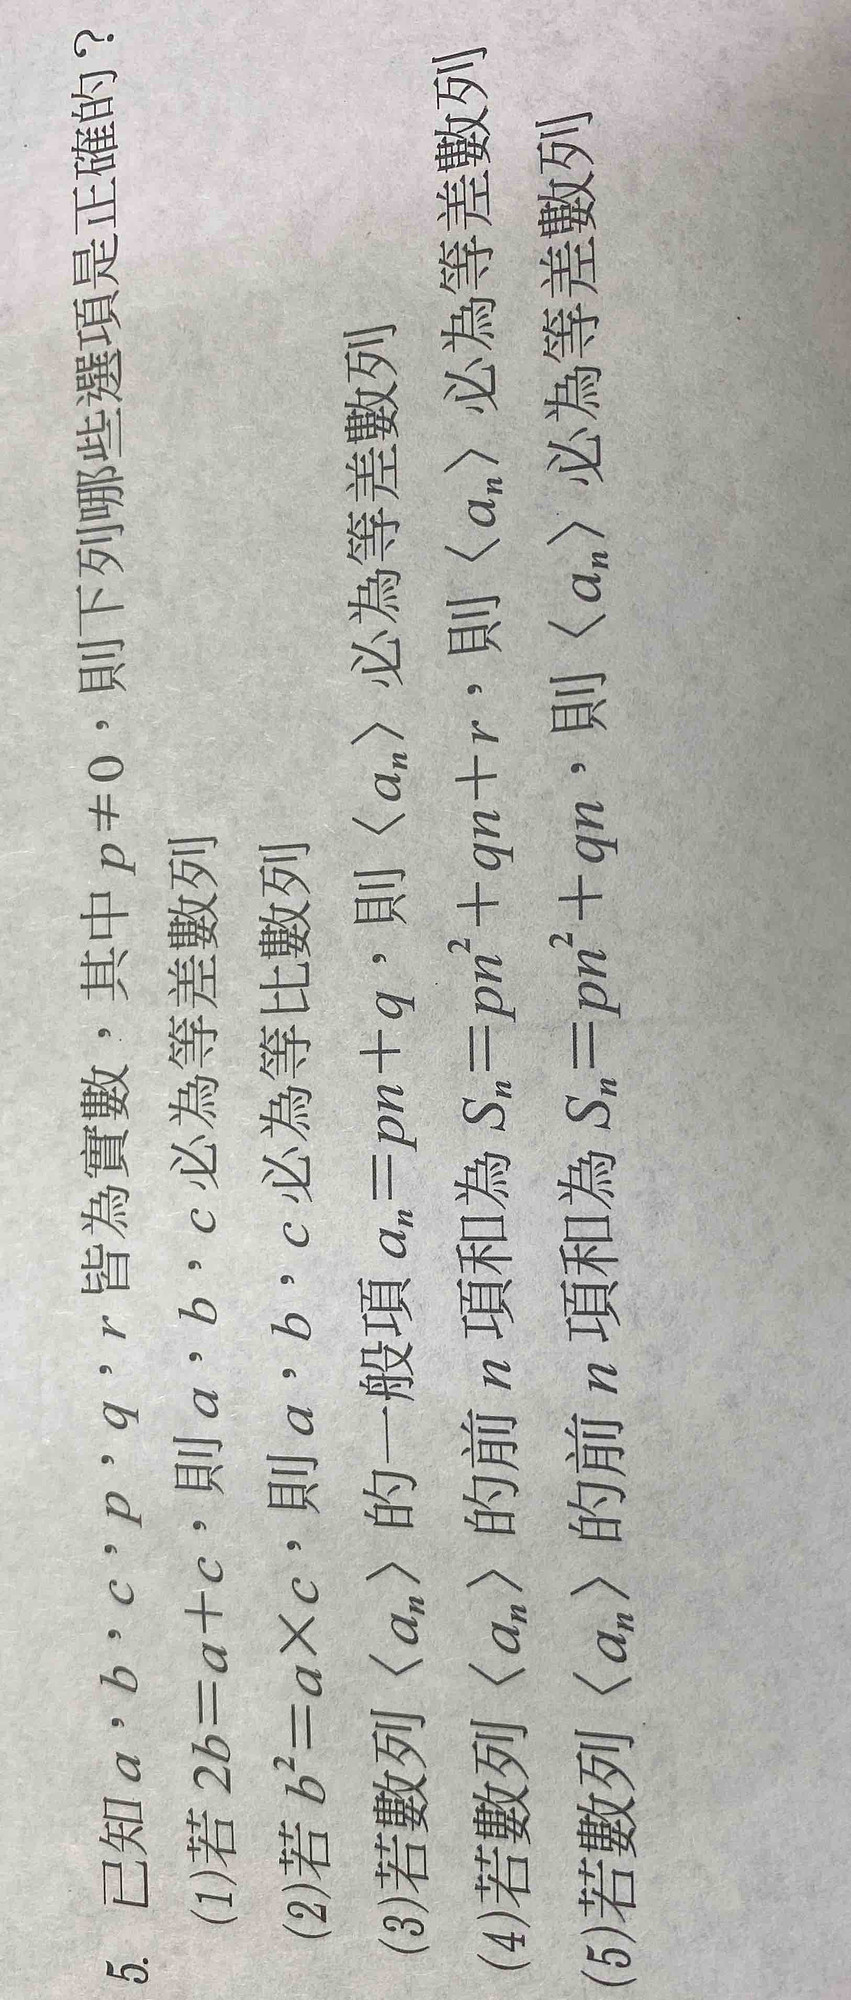 5. 已知 a，b，c，p，q，r 皆為實數，其中 p≠0，則下列哪些選項是正確的？
(1)若 2b=a+c，則 a，b，c 必為等差數列
(2)若 b²=a×c，則 a，b，c 必為等比數列
(3)若數列〈aₙ〉的一般項 aₙ=pn+q，則〈aₙ〉必為等差數列
(4)若數列〈aₙ〉的前 n 項和為 Sₙ=pn²+qn+r，則〈aₙ〉必為等差數列
(5)若數列〈aₙ〉的前 n 項和為 Sₙ=pn²+qn，則〈aₙ〉必為等差數列